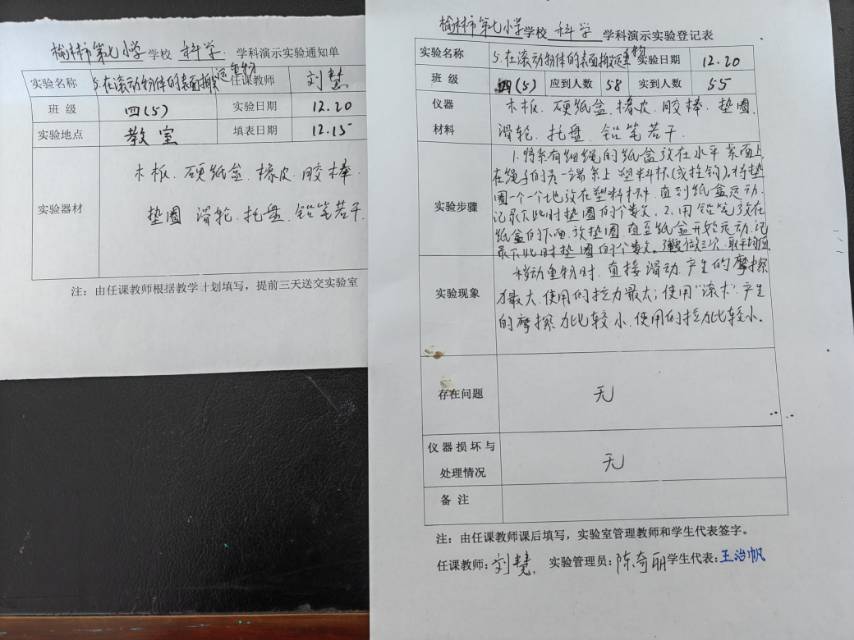 榆林市第七小学学校 科学 学科演示实验通知单
实验名称 5.在滚动物体的表面搬运重物 任课教师 刘慧
班级 四(5) 实验日期 12.20
实验地点 教室 填表日期 12.15
实验器材 木板、硬纸盒、橡皮、胶棒、
垫圈、滑轮、托盘、铅笔若干
注：由任课教师根据教学计划填写，提前三天送交实验室
榆林市第七小学学校 科学 学科演示实验登记表
实验名称 5.在滚动物体的表面搬运重物 实验日期 12.20
班级 四(5) 应到人数 58 实到人数 55
仪器 木板、硬纸盒、橡皮、胶棒、垫圈、
材料 滑轮、托盘、铅笔若干.
实验步骤
1.将系有细绳的纸盒放在水平桌面上,
在绳子的另一端系上塑料杯(或挂钩),将垫
圈一个一个地放在塑料杯中,直到纸盒运动,
记录下此时垫圈的个数。2.用铅笔放在
纸盒的下面,放垫圈直至纸盒开始运动,记
录下此时垫圈的个数。做三次,取平均值
实验现象
移动重物时,直接滑动产生的摩擦
力最大,使用的拉力最大;使用"滚木"产生
的摩擦力比较小,使用的拉力比较小。
存在问题 无
仪器损坏与
处理情况 无
备注
注：由任课教师课后填写，实验室管理教师和学生代表签字。
任课教师:刘慧 实验管理员:陈奇丽 学生代表:王治帆